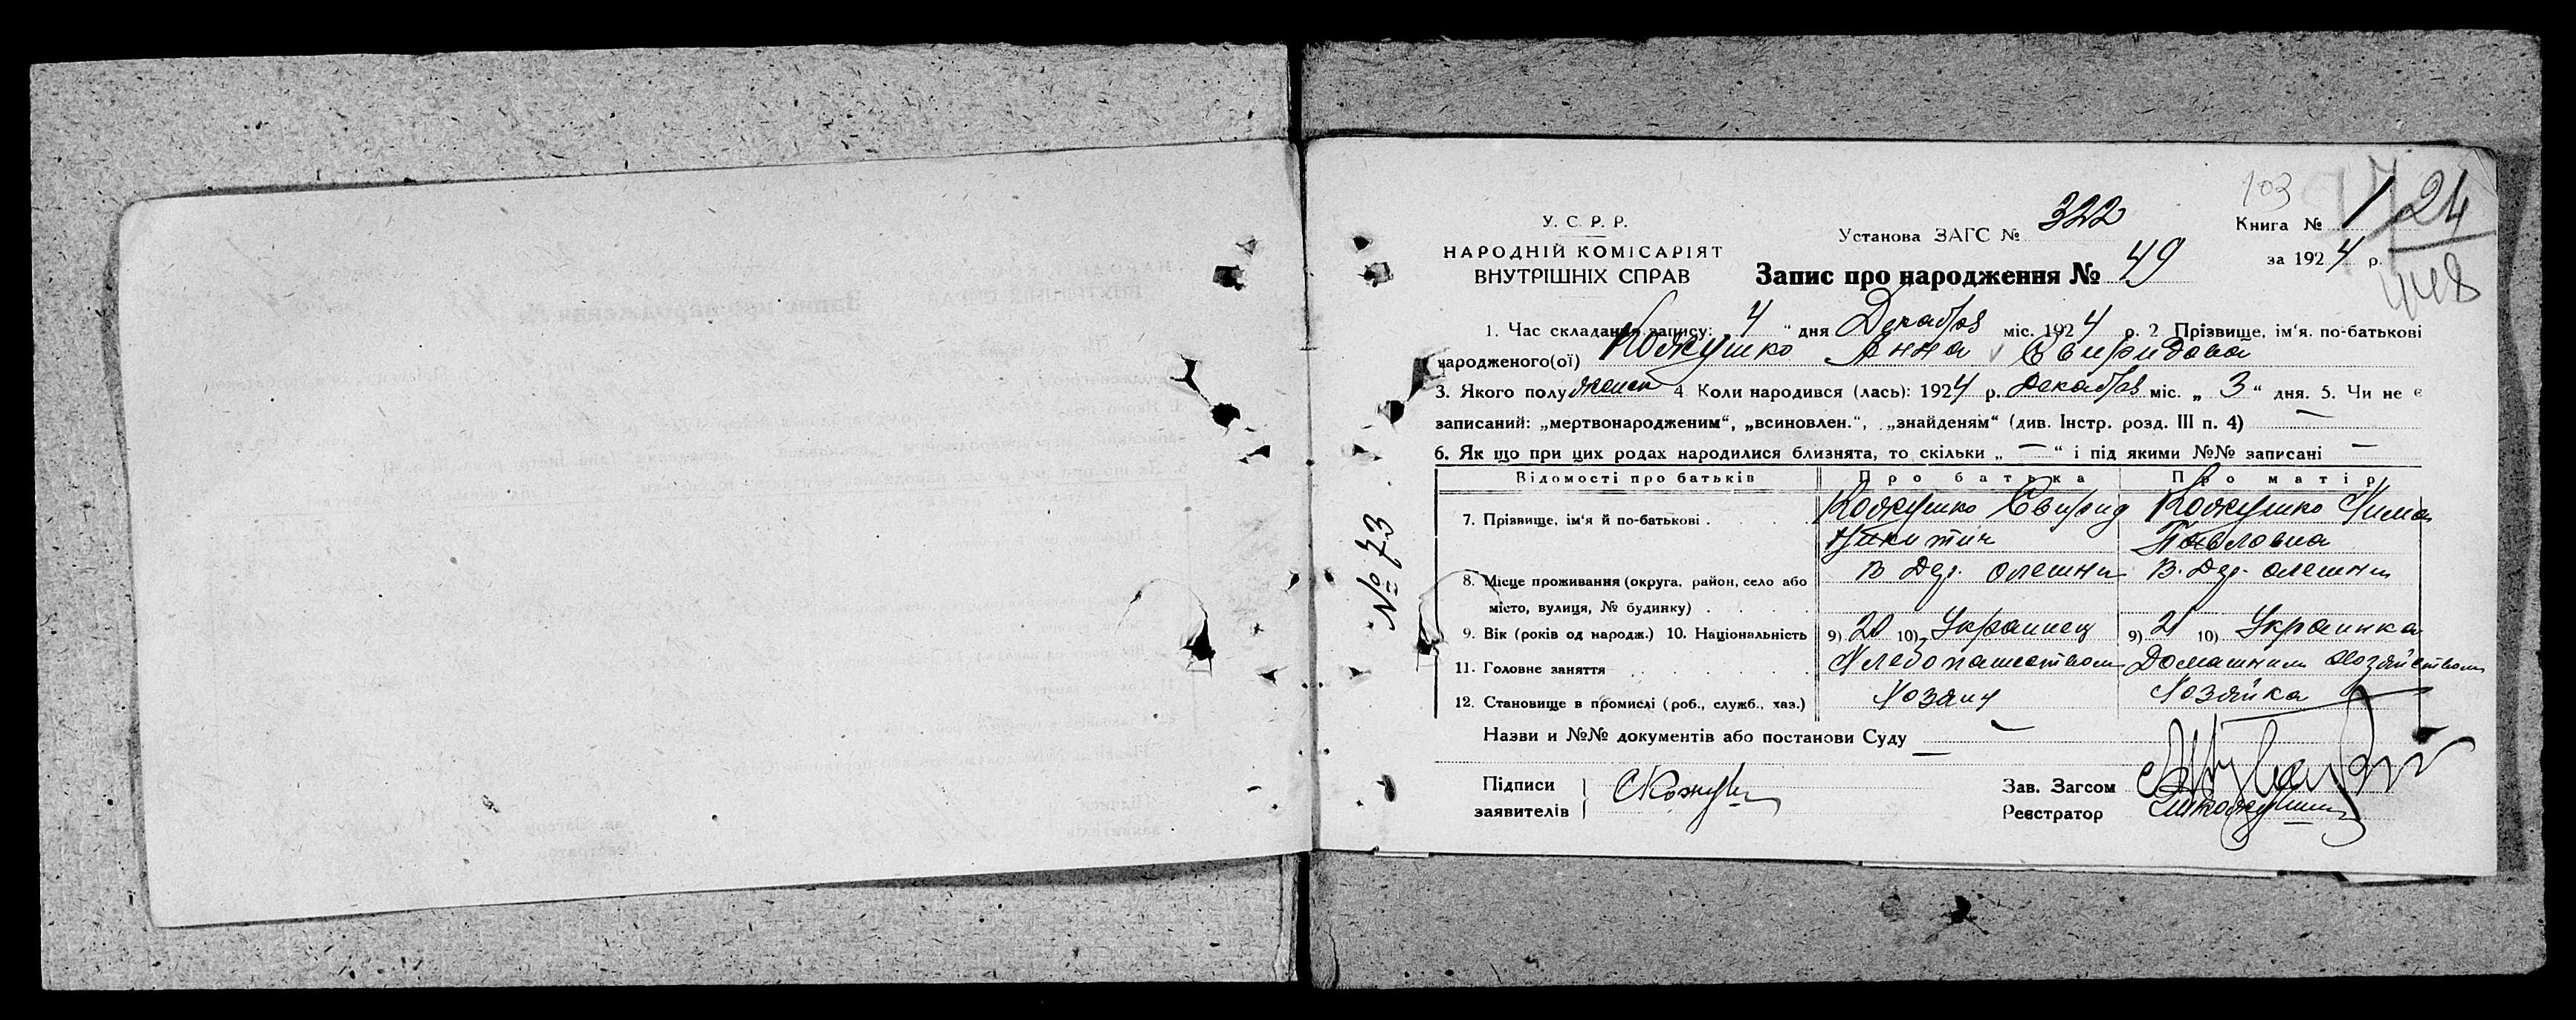 103
У. С. Р. Р.
НАРОДНІЙ КОМІСАРІЯТ
ВНУТРІШНІХ СПРАВ
Установа ЗАГС № 322
Книга № 1
24
448
Запис про народження № 49
за 1924 р.
1. Час складання запису: 4 " дня Декабря міс. 1924 р. 2 Прізвище, ім'я, по-батькові
народженого(ої) Кожушко Анна Свиридова
3. Якого полу женск 4 Коли народився (лась): 1924 р. Декабря міс. „ 3 " дня. 5. Чи не є
записаний: „мертвонародженим", „всиновлен.", „знайденям" (див. Інстр. розд. III п. 4) —
6. Як що при цих родах народилися близнята, то скільки „ — " і під якими №№ записані —
Відомості про батьків Про батька Про матір
№ 73
7. Прізвище, ім'я й по-батькові . Кожушко Свирид Кожушко
Никитич Павловна
8. Місце проживання (округа, район, село або В Дер. Олешни В. Дер. Олешни
місто, вулиця, № будинку) .
9. Вік (років од народж.) 10. Національність 9) 20 10) Украинец 9) 21 10) Украинка
11. Головне заняття Хлебопашеством Домашним хозяйством
12. Становище в промислі (роб., служб., хаз.) Хозяин Хозяйка
Назви и №№ документів або постанови Суду —
Підписи
заявителів
СКожуш
Зав. Загсом
Реєстратор